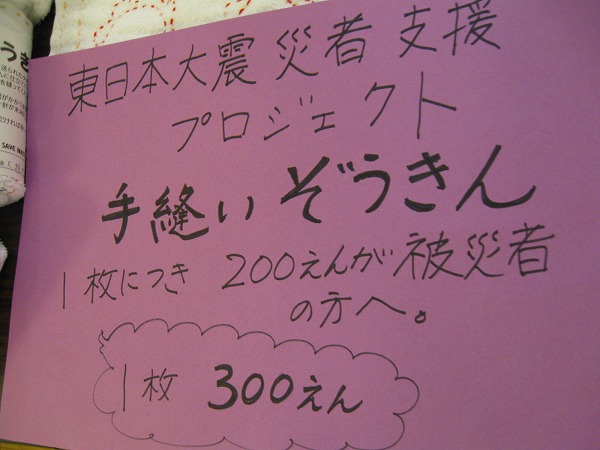 東日本大震災者支援
プロジェクト
手縫いぞうきん
1枚につき 200えんが被災者
の方へ。
1枚 300えん